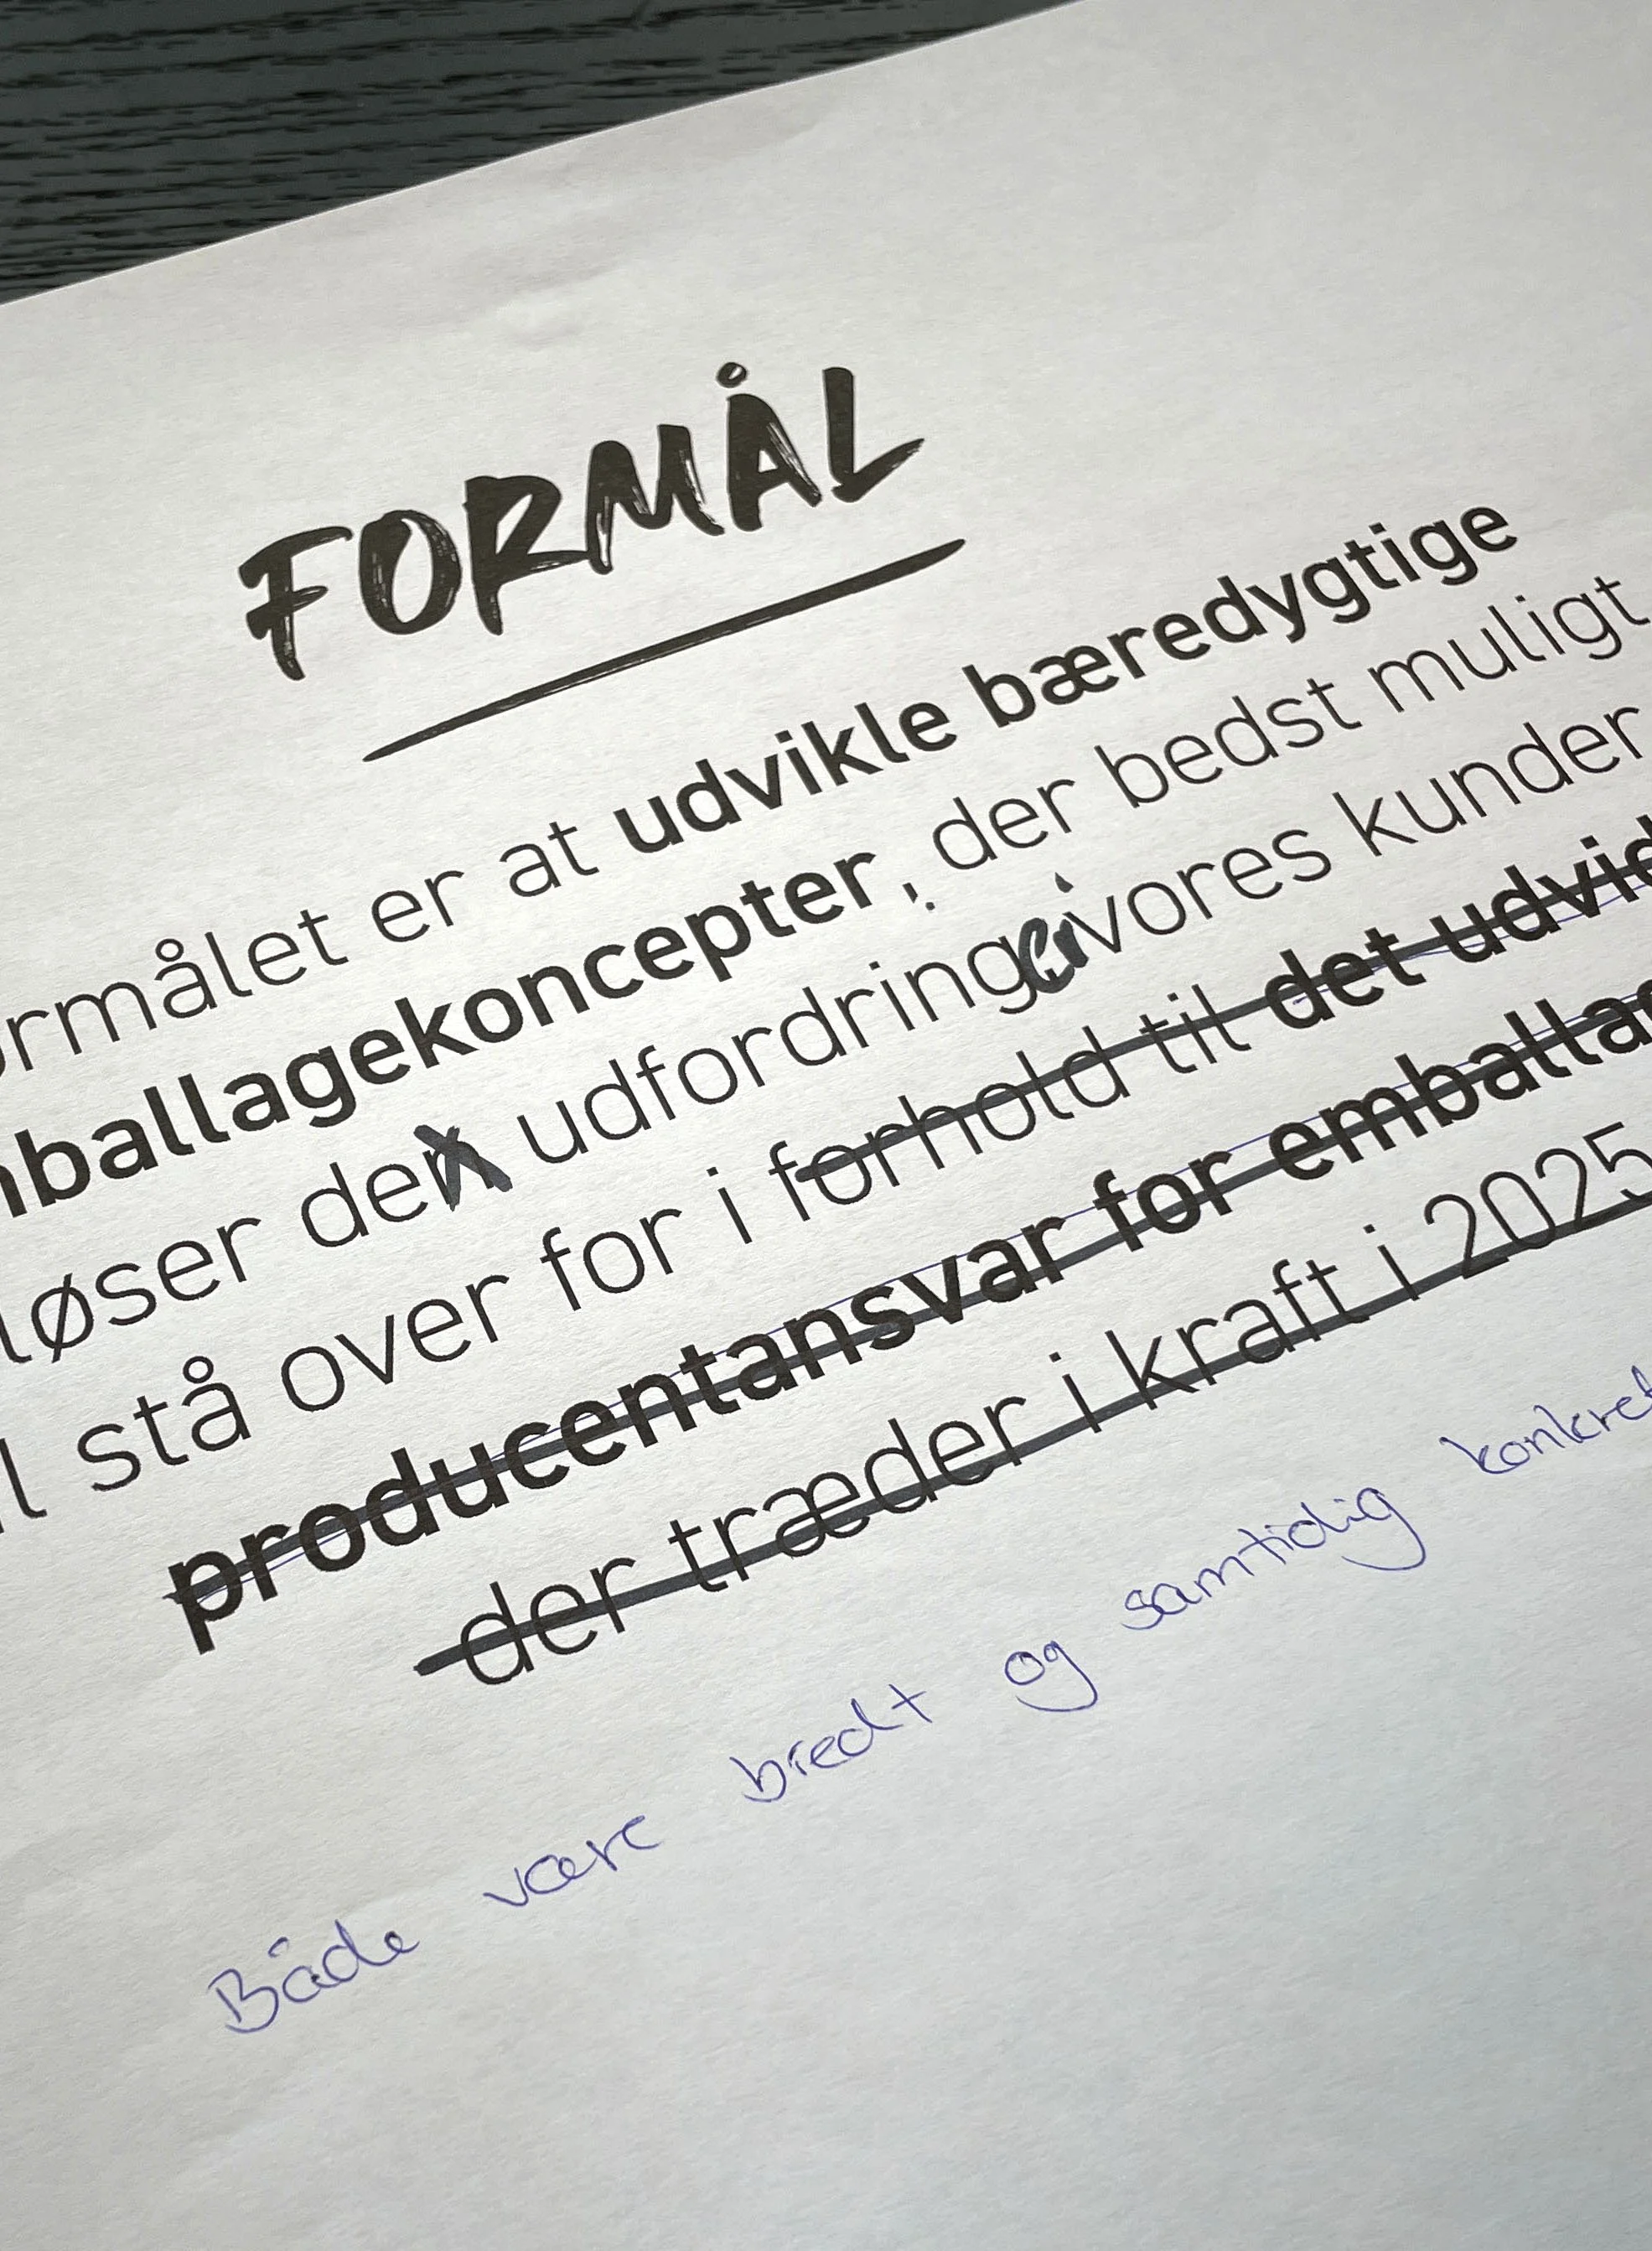 FORMÅL
ormålet er at udvikle bæredygtige
mballagekoncepter, der bedst muligt
løser den udfordring vores kunder
l stå over for i forhold til det udvid
producentansvar for emballag
der træder i kraft i 2025
Både være bredt og samtidig konkret